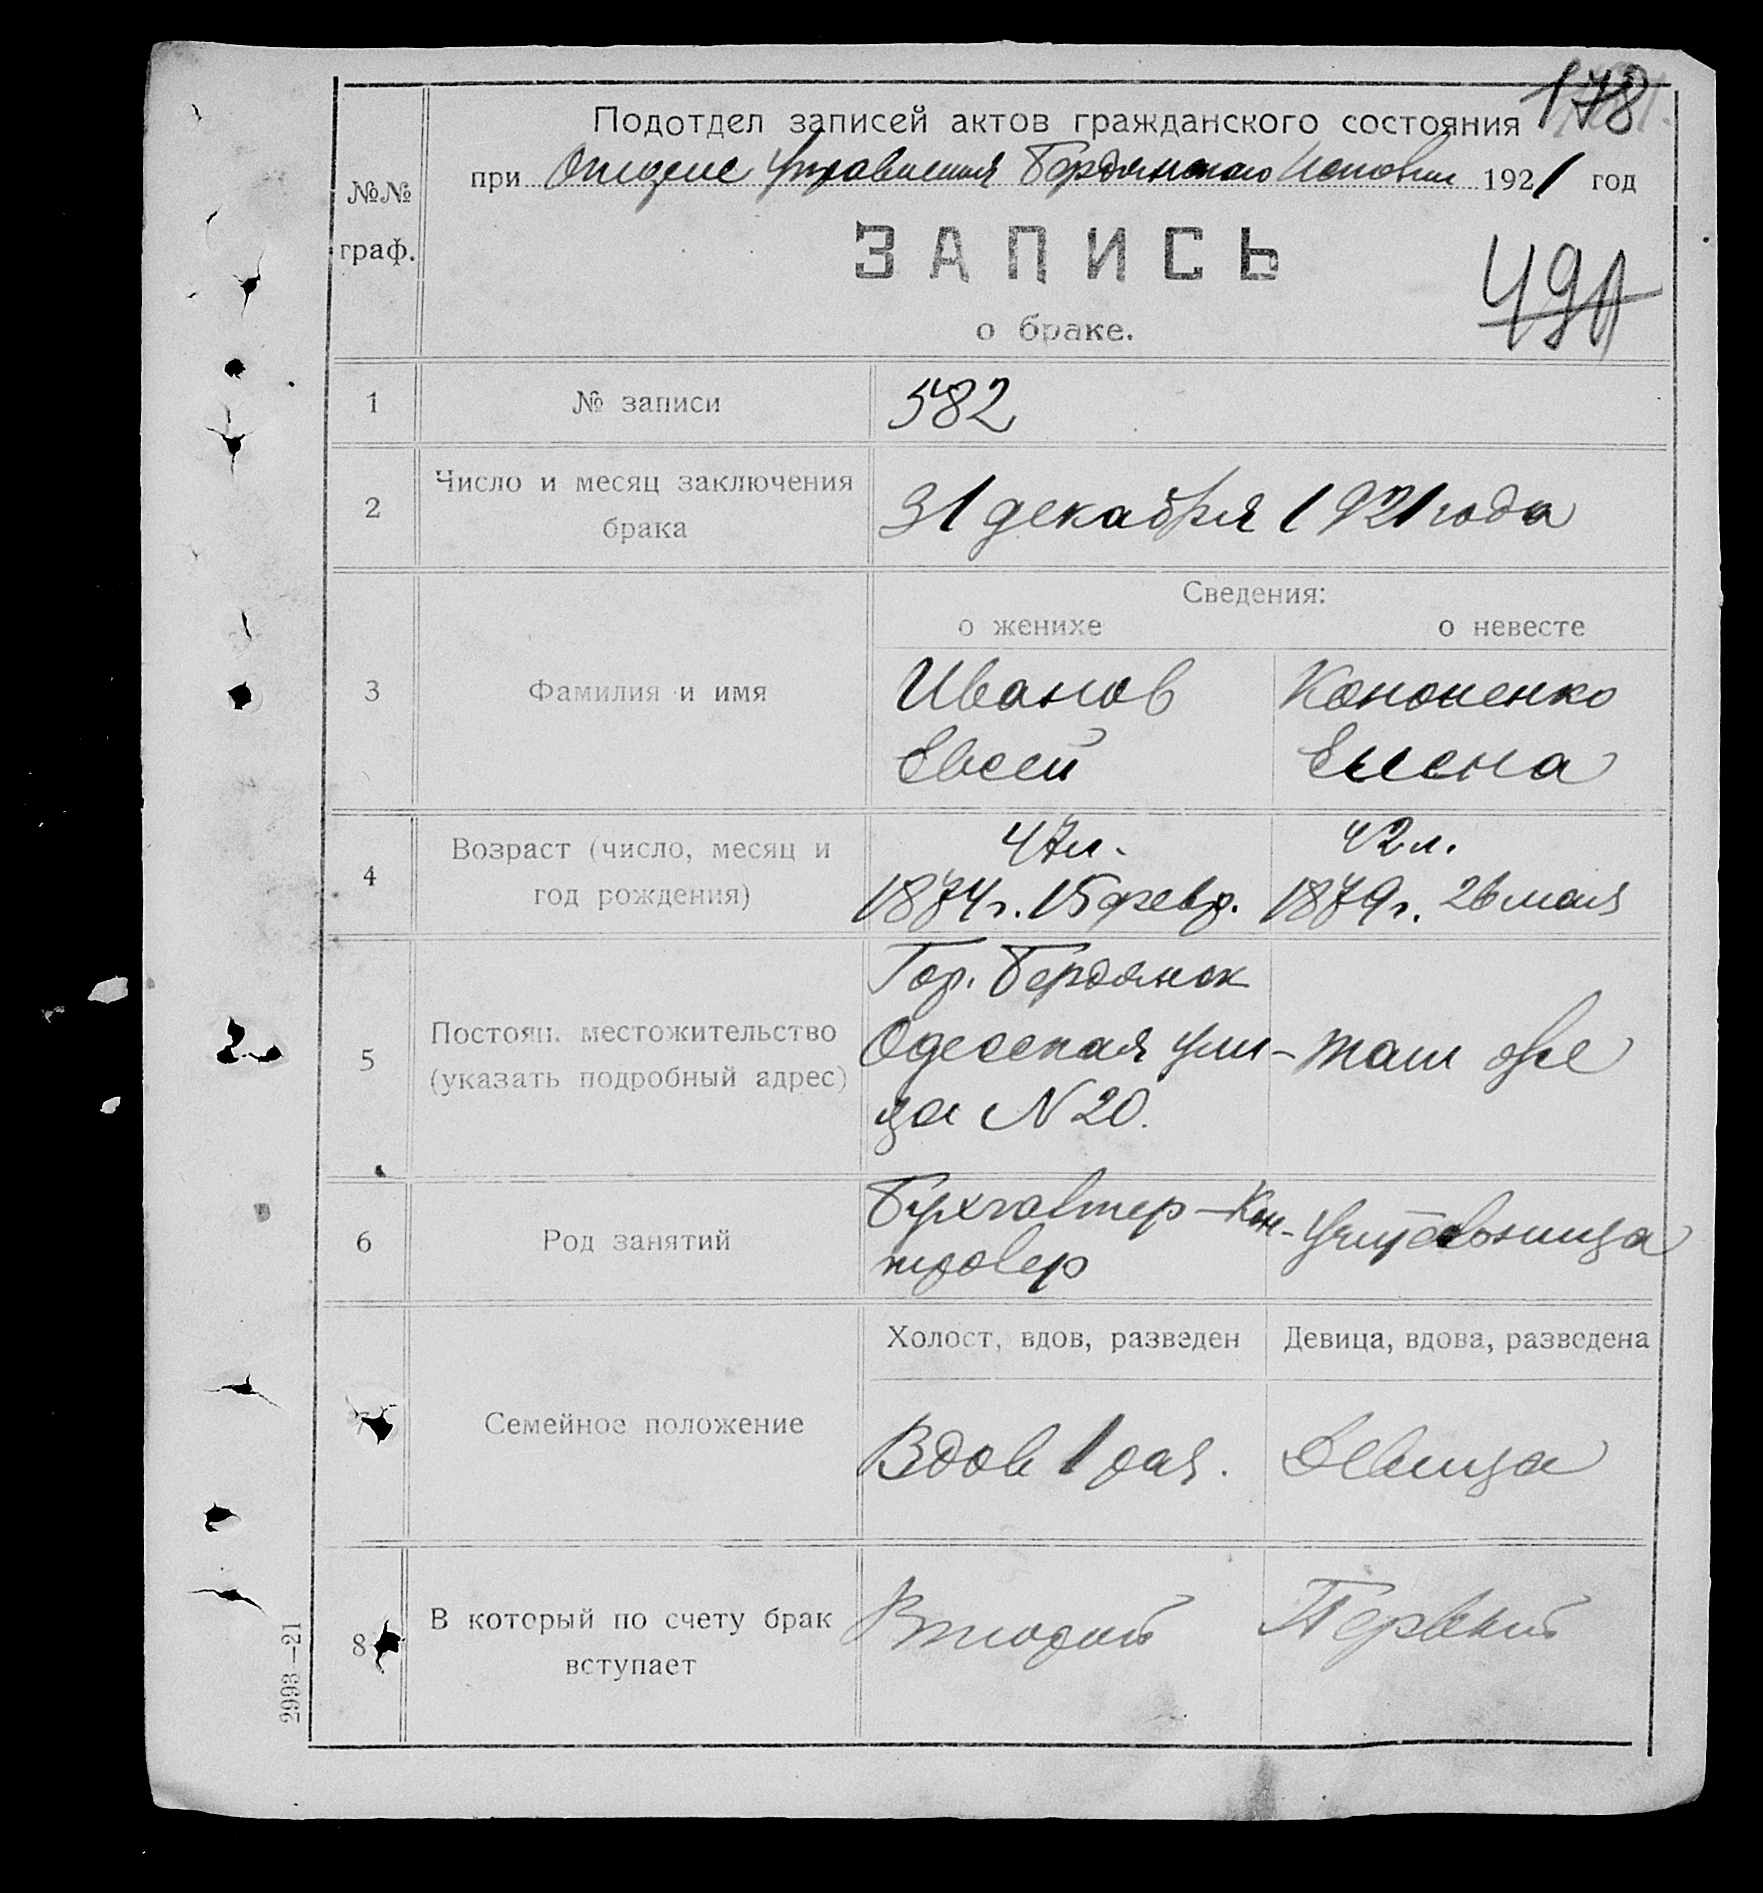 178
Подотдел записей актов гражданского состояния
при Отделе Управления Бердянского Исполкома 1921 год
№№
граф.
ЗАПИСЬ
о браке.
1 № записи 582
2 Число и месяц заключения
брака
31 декабря 1921 года
Сведения:
о женихе о невесте
3 Фамилия и имя
Иванов Кононенко
Евсей Елена
4 Возраст (число, месяц и
год рождения)
47 л. 42 л.
1874 г. 15 февр. 1879 г. 26 мая
5 Постоян. местожительство
(указать подробный адрес)
Гор. Бердянск
Одесская ули- там же
ца N 20.
6 Род занятий
Бухгалтер-Кон- Учительница
тролер
Холост, вдов, разведен Девица, вдова, разведена
7 Семейное положение
Вдов 1 раз. Девица
8 В который по счету брак
вступает
Второй Первый
2993—21